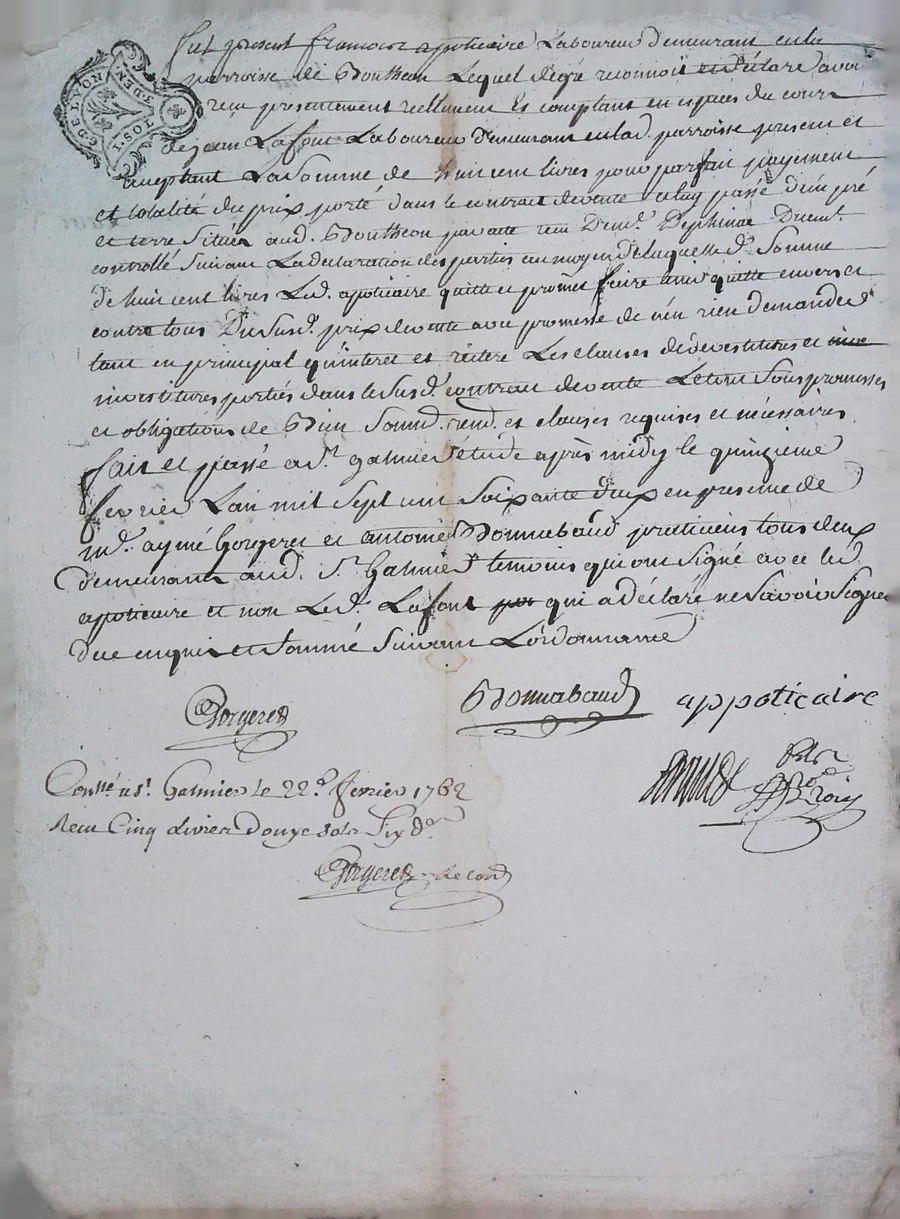 G. DE LYON
1. SOL
3. DEN
fut present francois apoticaire Laboureur demeurant en la
parroisse de Bouthéon Lequel degré reconnoit et déclare avoir
recu presentement reellement Et comptant en espèces du cours
de jean Lafont Laboureur demeurant en lad. parroisse present et
acceptant La Somme de huit cent livres pour parfait payement
et totalité du prix porté dans le contrat de vente passé d'un pré
et terre situéz aud. Bouthéon par acte recu Dem.e Dephinac Duemt.
controllé suivant La declaration des parties au moyen de laquelle d. Somme
de huit cent livres Led. apoticaire quitte et promet faire tenir quitte envers et
contre tous Du Susd. prix de vente avec promesse de n'en rien demander
tant en principal qu'interet et réitere Les clauses de devestitures et
investitures portées dans le Susd. contrat de vente Le tout Sous promesses
et obligations de Bien Soumd. rend. et clauses requises et nécessaires
fait et passé a St. galmier étude après midy le quinzieme
fevrier Lan mil Sept cent Soixante deux en presence de
m.e aymé Gorgeret et antoine Bonnabaud praticiens tous deux
demeurants aud. St. Galmier temoins qui ont signé avec led.
apoticaire et non Led. Lafont qui a déclaré ne Savoir Signer
due enquis et Sommé Suivant L'ordonnance
Gorgeret
Bonnabaud
appoticaire
Conllé. a St. Galmier le 22.e fevrier 1762
Recu Cinq livres Douze sols Six d.
Gorgeret